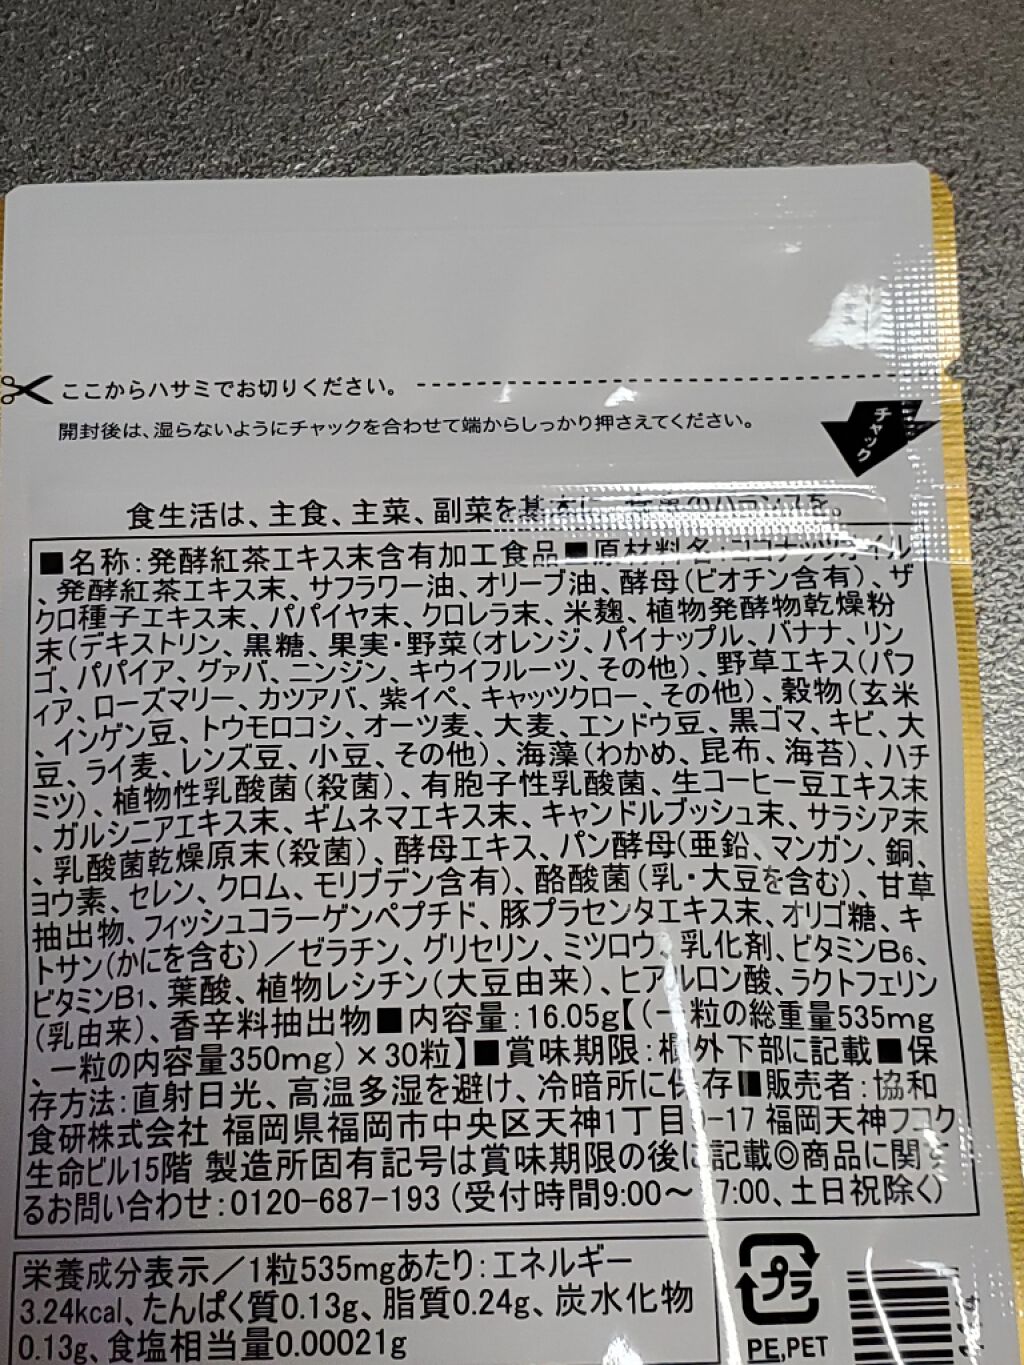 ここからハサミでお切りください。
開封後は、湿らないようにチャックを合わせて端からしっかり押さえてください。
チャック
食生活は、主食、主菜、副菜を基本に、食事のバランスを。
■名称:発酵紅茶エキス末含有加工食品■原材料名:ココナッツオイル
、発酵紅茶エキス末、サフラワー油、オリーブ油、酵母(ビオチン含有)、ザ
クロ種子エキス末、パパイヤ末、クロレラ末、米麹、植物発酵物乾燥粉
末(デキストリン、黒糖、果実・野菜(オレンジ、パイナップル、バナナ、リン
ゴ、パパイア、グァバ、ニンジン、キウイフルーツ、その他)、野草エキス(パフ
ィア、ローズマリー、カツアバ、紫イペ、キャッツクロー、その他)、穀物(玄米
、インゲン豆、トウモロコシ、オーツ麦、大麦、エンドウ豆、黒ゴマ、キビ、大
豆、ライ麦、レンズ豆、小豆、その他)、海藻(わかめ、昆布、海苔)、ハチ
ミツ)、植物性乳酸菌(殺菌)、有胞子性乳酸菌、生コーヒー豆エキス末
、ガルシニアエキス末、ギムネマエキス末、キャンドルブッシュ末、サラシア末
、乳酸菌乾燥原末(殺菌)、酵母エキス、パン酵母(亜鉛、マンガン、銅、
ヨウ素、セレン、クロム、モリブデン含有)、酪酸菌(乳・大豆を含む)、甘草
抽出物、フィッシュコラーゲンペプチド、豚プラセンタエキス末、オリゴ糖、キ
トサン(かにを含む)/ゼラチン、グリセリン、ミツロウ、乳化剤、ビタミンB6、
ビタミンB1、葉酸、植物レシチン(大豆由来)、ヒアルロン酸、ラクトフェリン
(乳由来)、香辛料抽出物■内容量:16.05g【(一粒の総重量535mg
、一粒の内容量350mg)×30粒】■賞味期限:欄外下部に記載■保
存方法:直射日光、高温多湿を避け、冷暗所に保存■販売者:協和
食研株式会社 福岡県福岡市中央区天神1丁目 -17 福岡天神フコク
生命ビル15階 製造所固有記号は賞味期限の後に記載◎商品に関す
るお問い合わせ:0120-687-193(受付時間9:00～ 7:00、土日祝除く)
栄養成分表示/1粒535mgあたり:エネルギー
3.24kcal、たんぱく質0.13g、脂質0.24g、炭水化物
0.13g、食塩相当量0.00021g
プラ
PE,PET